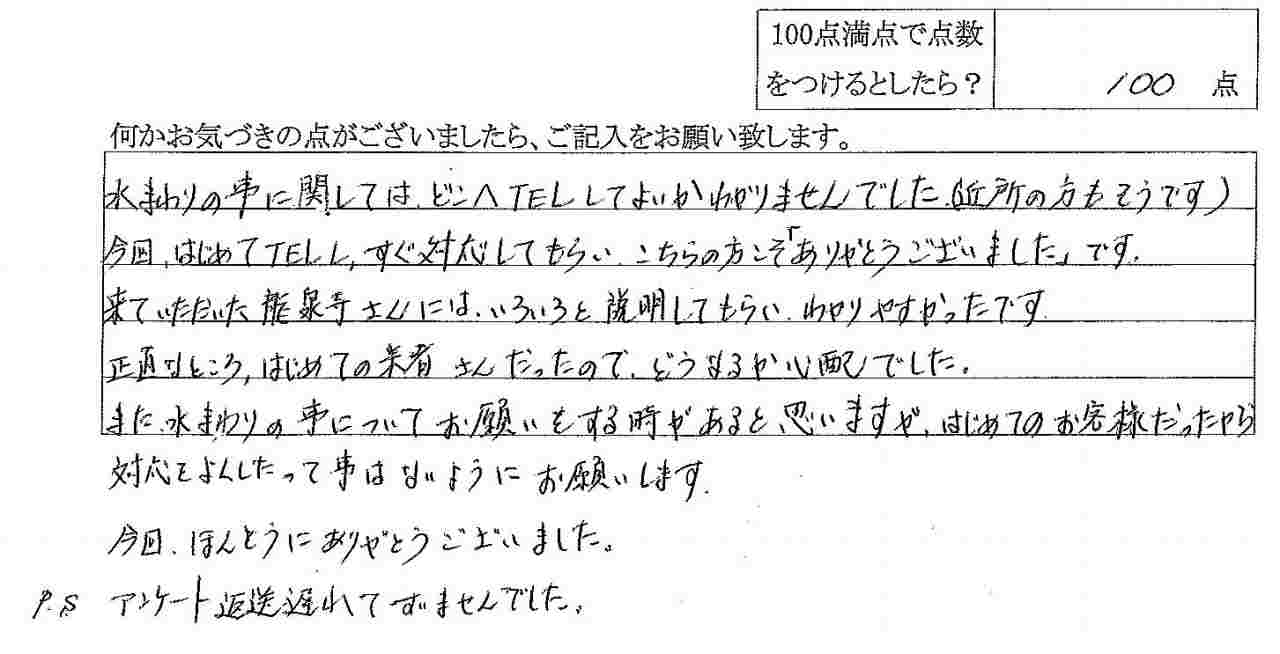 100点満点で点数
をつけるとしたら？
100 点
何かお気づきの点がございましたら、ご記入をお願い致します。
水まわりの事に関しては、どこへTELしてよいかわかりませんでした。(近所の方もそうです)
今回、はじめてTELし、すぐ対応してもらい、こちらの方こそ「ありがとうございました」です。
来ていただいた龍泉寺さんには、いろいろと説明してもらい、わかりやすかったです
正直なところ、はじめての業者さんだったので、どうなるか心配でした。
また、水まわりの事についてお願いをする時があると思いますが、はじめてのお客様だったから
対応をよくしたって事はないようにお願いします。
今回、ほんとうにありがとうございました。
P.S アンケート返送遅れてすいませんでした。